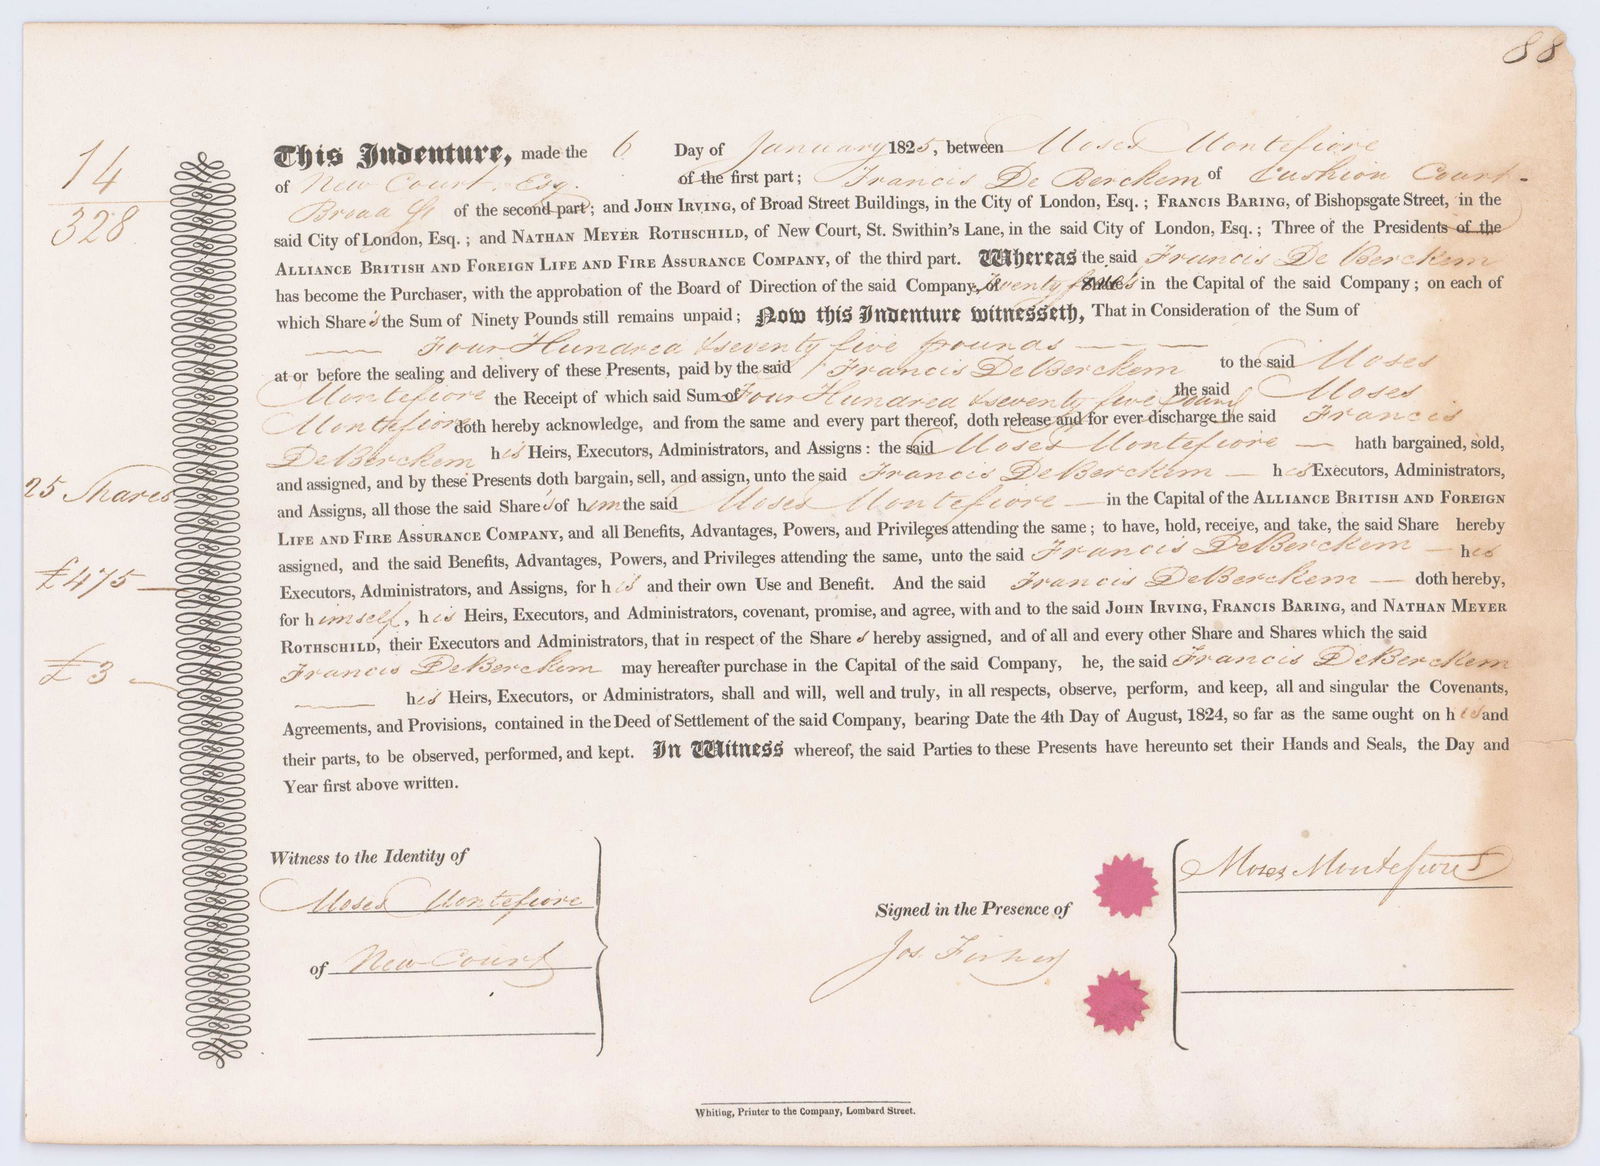 88
14
328
This Indenture, made the 6 Day of January 1825, between Moses Montefiore
of New Court Esq. of the first part; Francis De Berckem of Cushion Court
Broad St of the second part; and JOHN IRVING, of Broad Street Buildings, in the City of London, Esq.; FRANCIS BARING, of Bishopsgate Street, in the
said City of London, Esq.; and NATHAN MEYER ROTHSCHILD, of New Court, St. Swithin's Lane, in the said City of London, Esq.; Three of the Presidents of the
ALLIANCE BRITISH AND FOREIGN LIFE AND FIRE ASSURANCE COMPANY, of the third part. Whereas the said Francis De Berckem
has become the Purchaser, with the approbation of the Board of Direction of the said Company, twenty five in the Capital of the said Company; on each of
which Share's the Sum of Ninety Pounds still remains unpaid; Now this Indenture witnesseth, That in Consideration of the Sum of
Four Hundred & seventy five pounds
at or before the sealing and delivery of these Presents, paid by the said Francis De Berckem to the said Moses
Montefiore the Receipt of which said Sum of Four Hundred & seventy five Pound the said Moses
Montefiore doth hereby acknowledge, and from the same and every part thereof, doth release and for ever discharge the said Francis
De Berckem his Heirs, Executors, Administrators, and Assigns: the said Moses Montefiore — hath bargained, sold,
and assigned, and by these Presents doth bargain, sell, and assign, unto the said Francis De Berckem — his Executors, Administrators,
25 Shares
and Assigns, all those the said Share's of him the said Moses Montefiore — in the Capital of the ALLIANCE BRITISH AND FOREIGN
LIFE AND FIRE ASSURANCE COMPANY, and all Benefits, Advantages, Powers, and Privileges attending the same; to have, hold, receive, and take, the said Share hereby
assigned, and the said Benefits, Advantages, Powers, and Privileges attending the same, unto the said Francis De Berckem — his
£475 —
Executors, Administrators, and Assigns, for his and their own Use and Benefit. And the said Francis De Berckem — doth hereby,
for himself, his Heirs, Executors, and Administrators, covenant, promise, and agree, with and to the said JOHN IRVING, FRANCIS BARING, and NATHAN MEYER
ROTHSCHILD, their Executors and Administrators, that in respect of the Share s hereby assigned, and of all and every other Share and Shares which the said
£3 —
Francis De Berckem may hereafter purchase in the Capital of the said Company, he, the said Francis De Berckem
his Heirs, Executors, or Administrators, shall and will, well and truly, in all respects, observe, perform, and keep, all and singular the Covenants,
Agreements, and Provisions, contained in the Deed of Settlement of the said Company, bearing Date the 4th Day of August, 1824, so far as the same ought on his and
their parts, to be observed, performed, and kept. In Witness whereof, the said Parties to these Presents have hereunto set their Hands and Seals, the Day and
Year first above written.
Witness to the Identity of
Moses Montefiore
of New Court
Signed in the Presence of
Jos
Moses Montefiore
Whiting, Printer to the Company, Lombard Street.